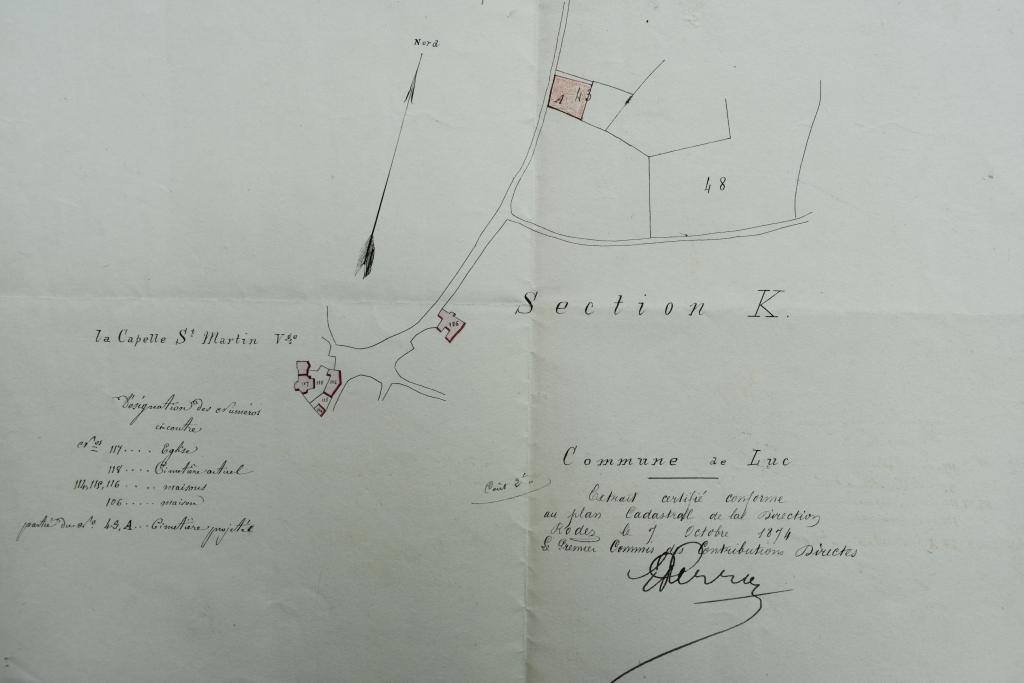 Nord
A 43
48
Section K.
106
la Capelle St Martin Vge
117 118
Désignation des Numéros
ci contre
Nos 117.... Eglise
118.... Cimetière actuel
114, 115, 116 .... maisons
106..... maison
partie du No 43, A... Cimetière projeté
Commune de Luc
Coût 2f "
Extrait certifié conforme
au plan Cadastral de la Direction
Rodez le 7 Octobre 1874
Le Premier Commis des Contributions Directes